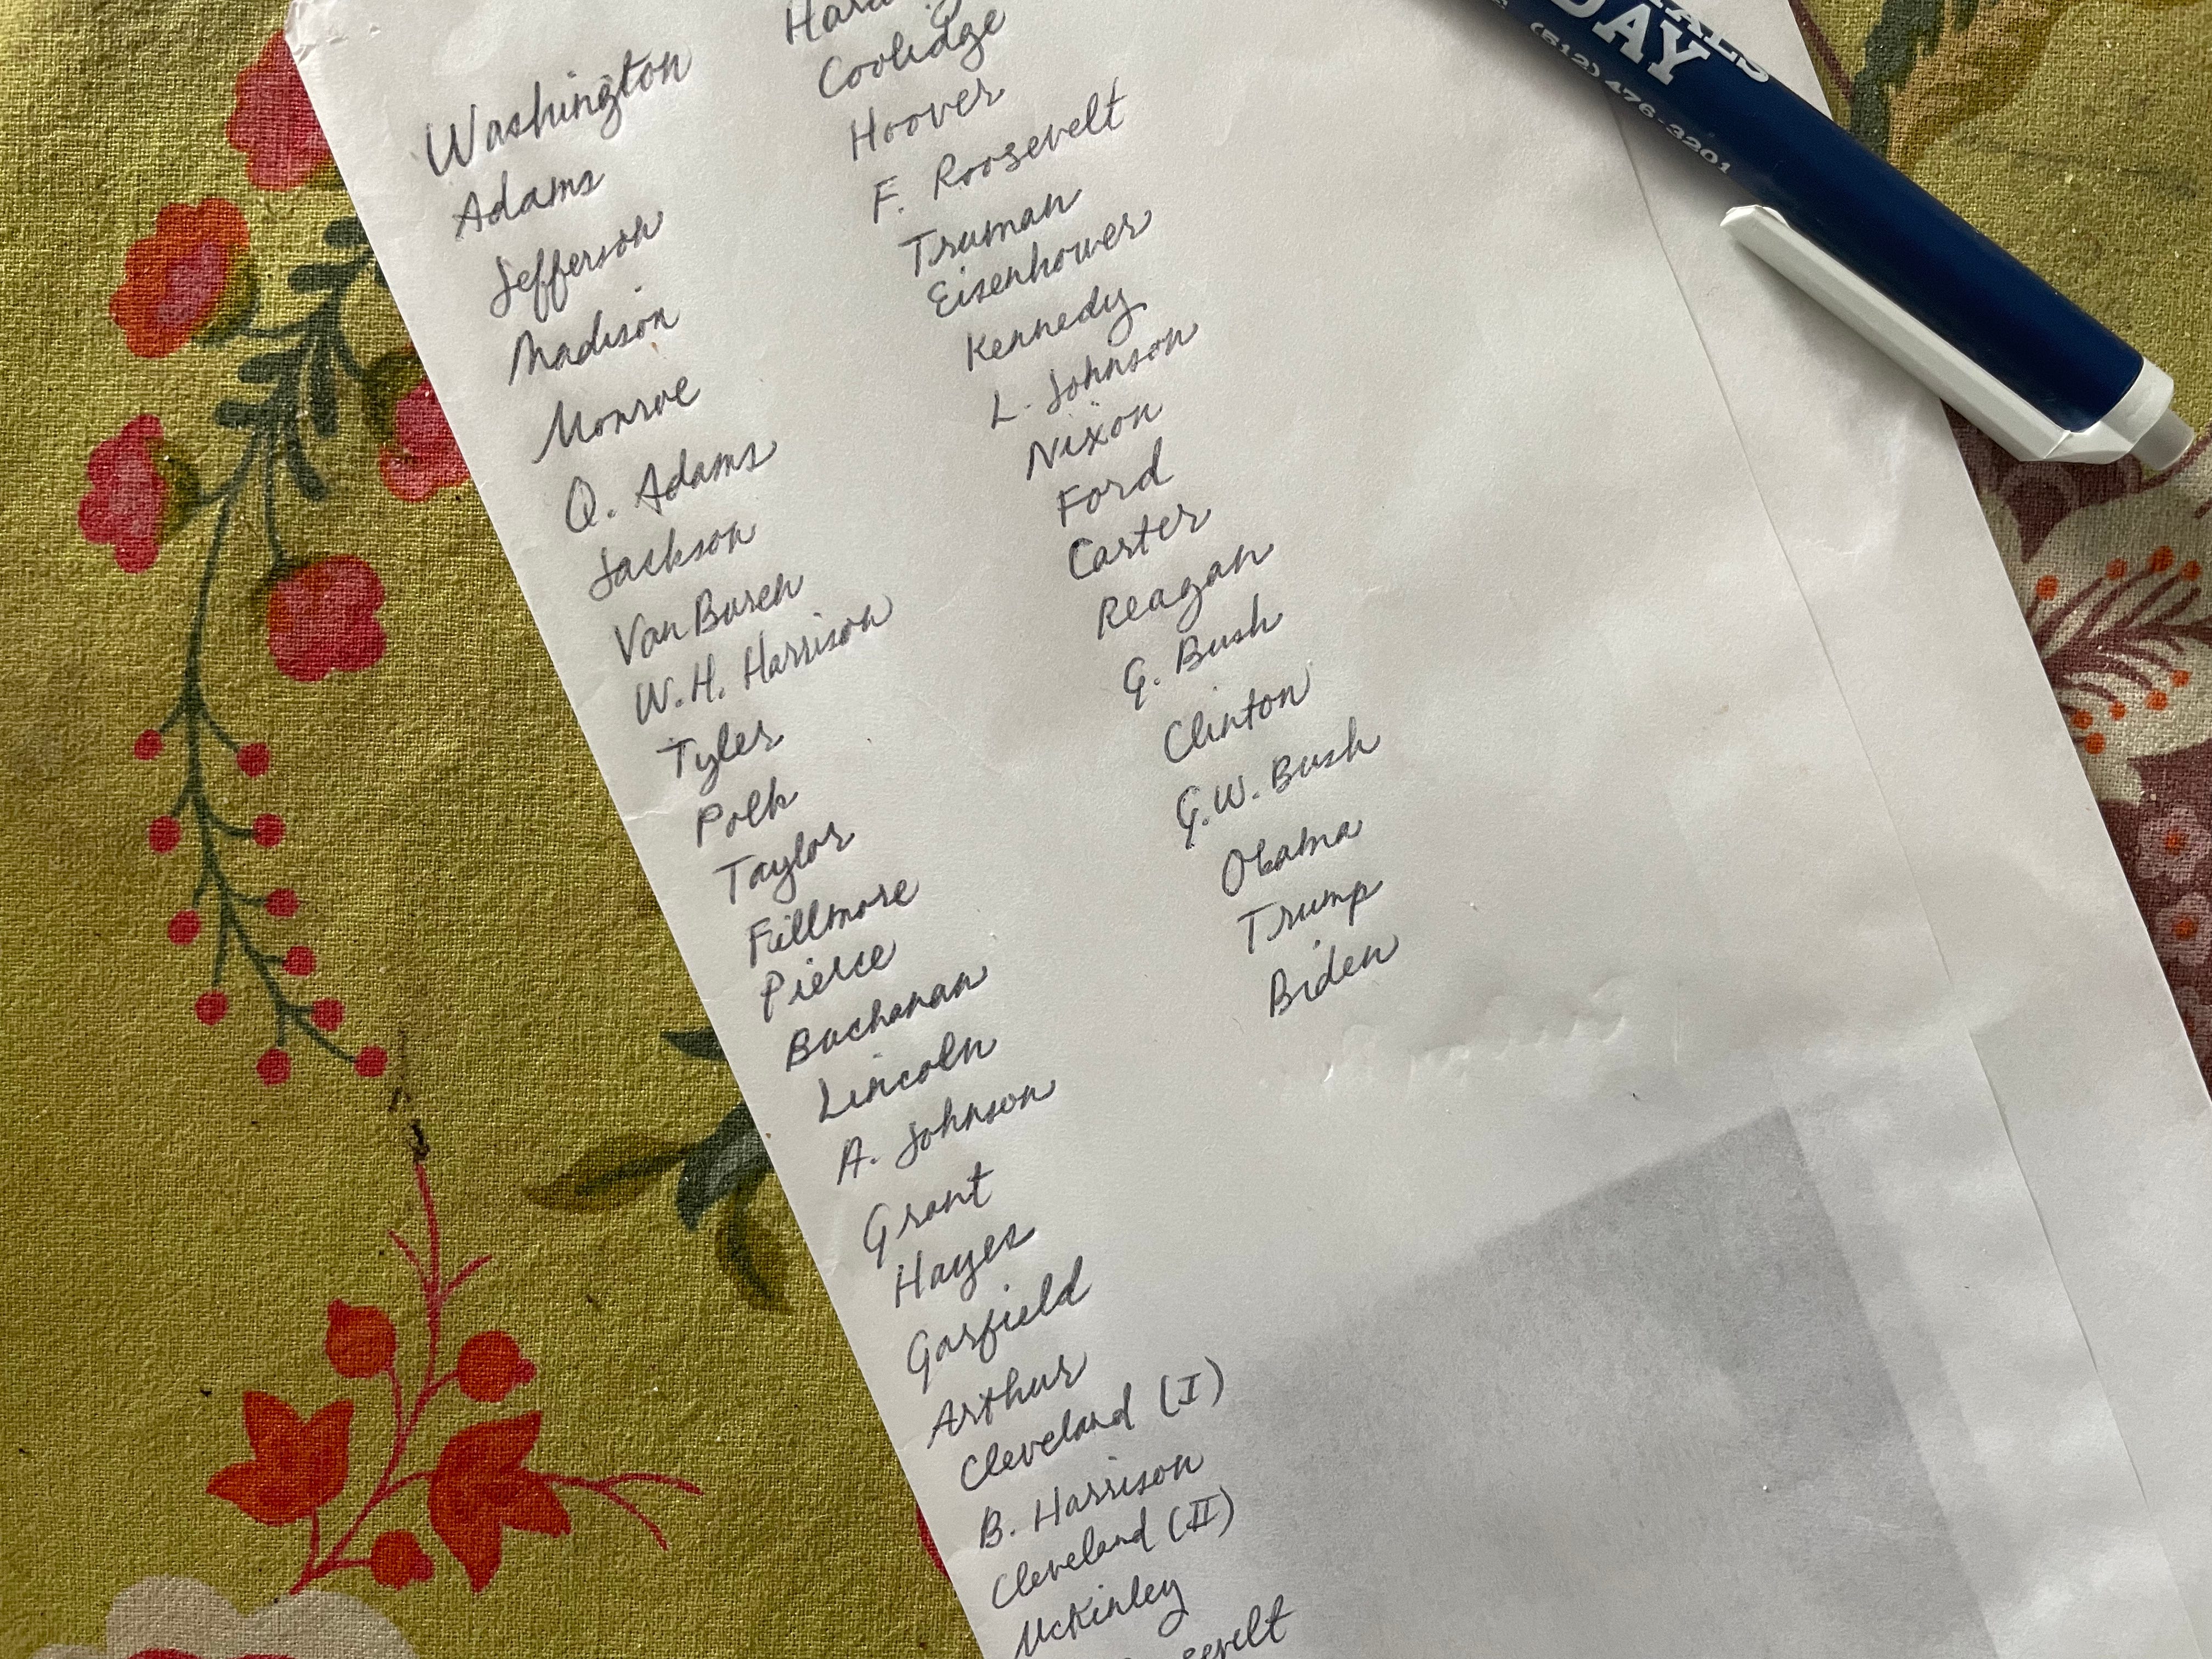 Washington
Adams
Jefferson
Madison
Monroe
Q. Adams
Jackson
Van Buren
W.H. Harrison
Tyler
Polk
Taylor
Fillmore
Pierce
Buchanan
Lincoln
A. Johnson
Grant
Hayes
Garfield
Arthur
Cleveland (I)
B. Harrison
Cleveland (II)
McKinley
Coolidge
Hoover
F. Roosevelt
Truman
Eisenhower
Kennedy
L. Johnson
Nixon
Ford
Carter
Reagan
G. Bush
Clinton
G.W. Bush
Obama
Trump
Biden
DAY
(512) 476-3201